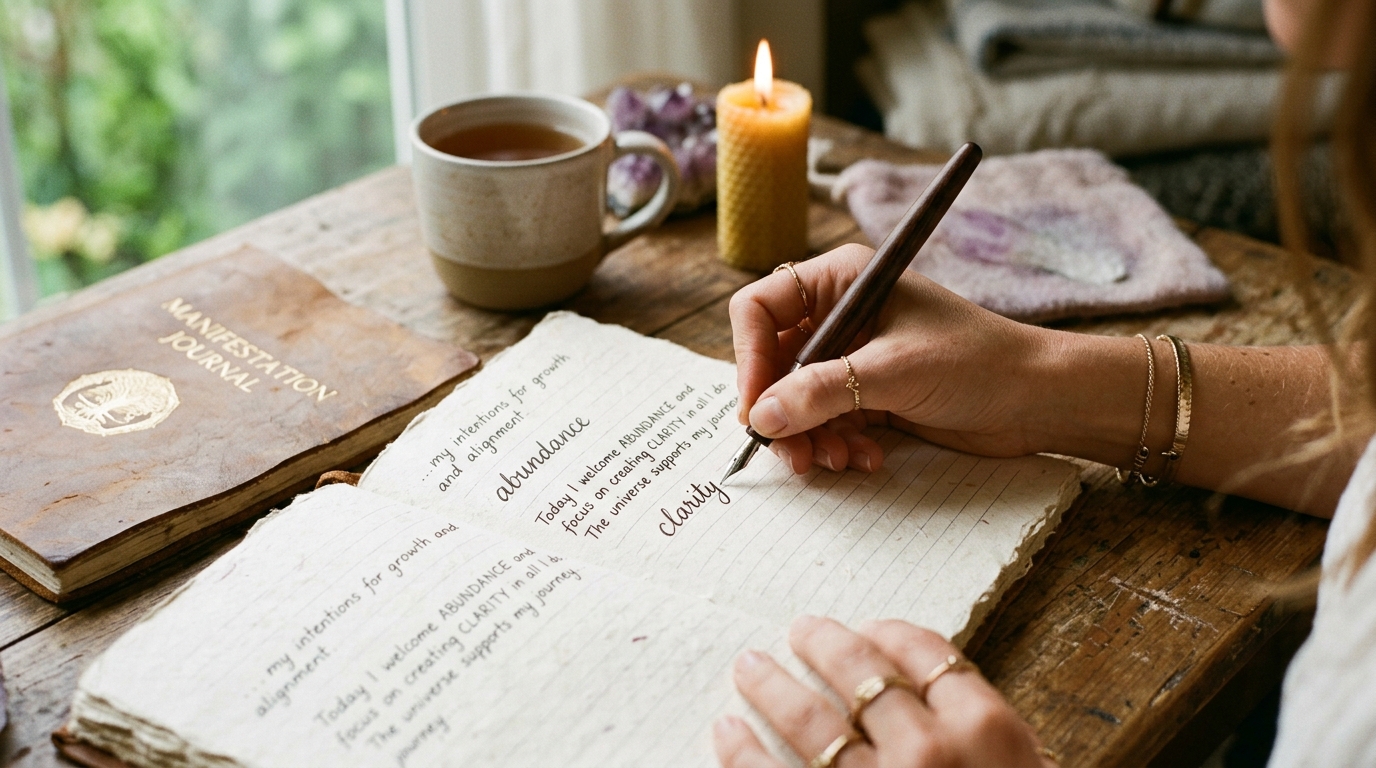 MANIFESTATION
JOURNAL
...my intentions for growth
and alignment.
abundance
Today I welcome ABUNDANCE and
focus on creating CLARITY in all I do.
The universe supports my journey
clarity
... my intentions for growth and
alignment
Today I welcome ABUNDANCE and
focus on creating CLARITY in all I do.
The universe supports my journey
journey